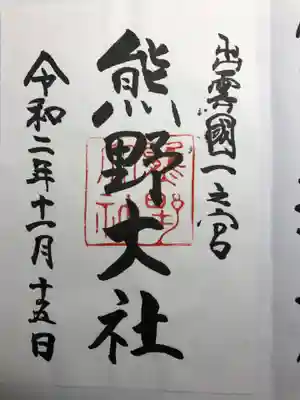 出雲國一之宮
熊野大社
令和二年十一月十五日